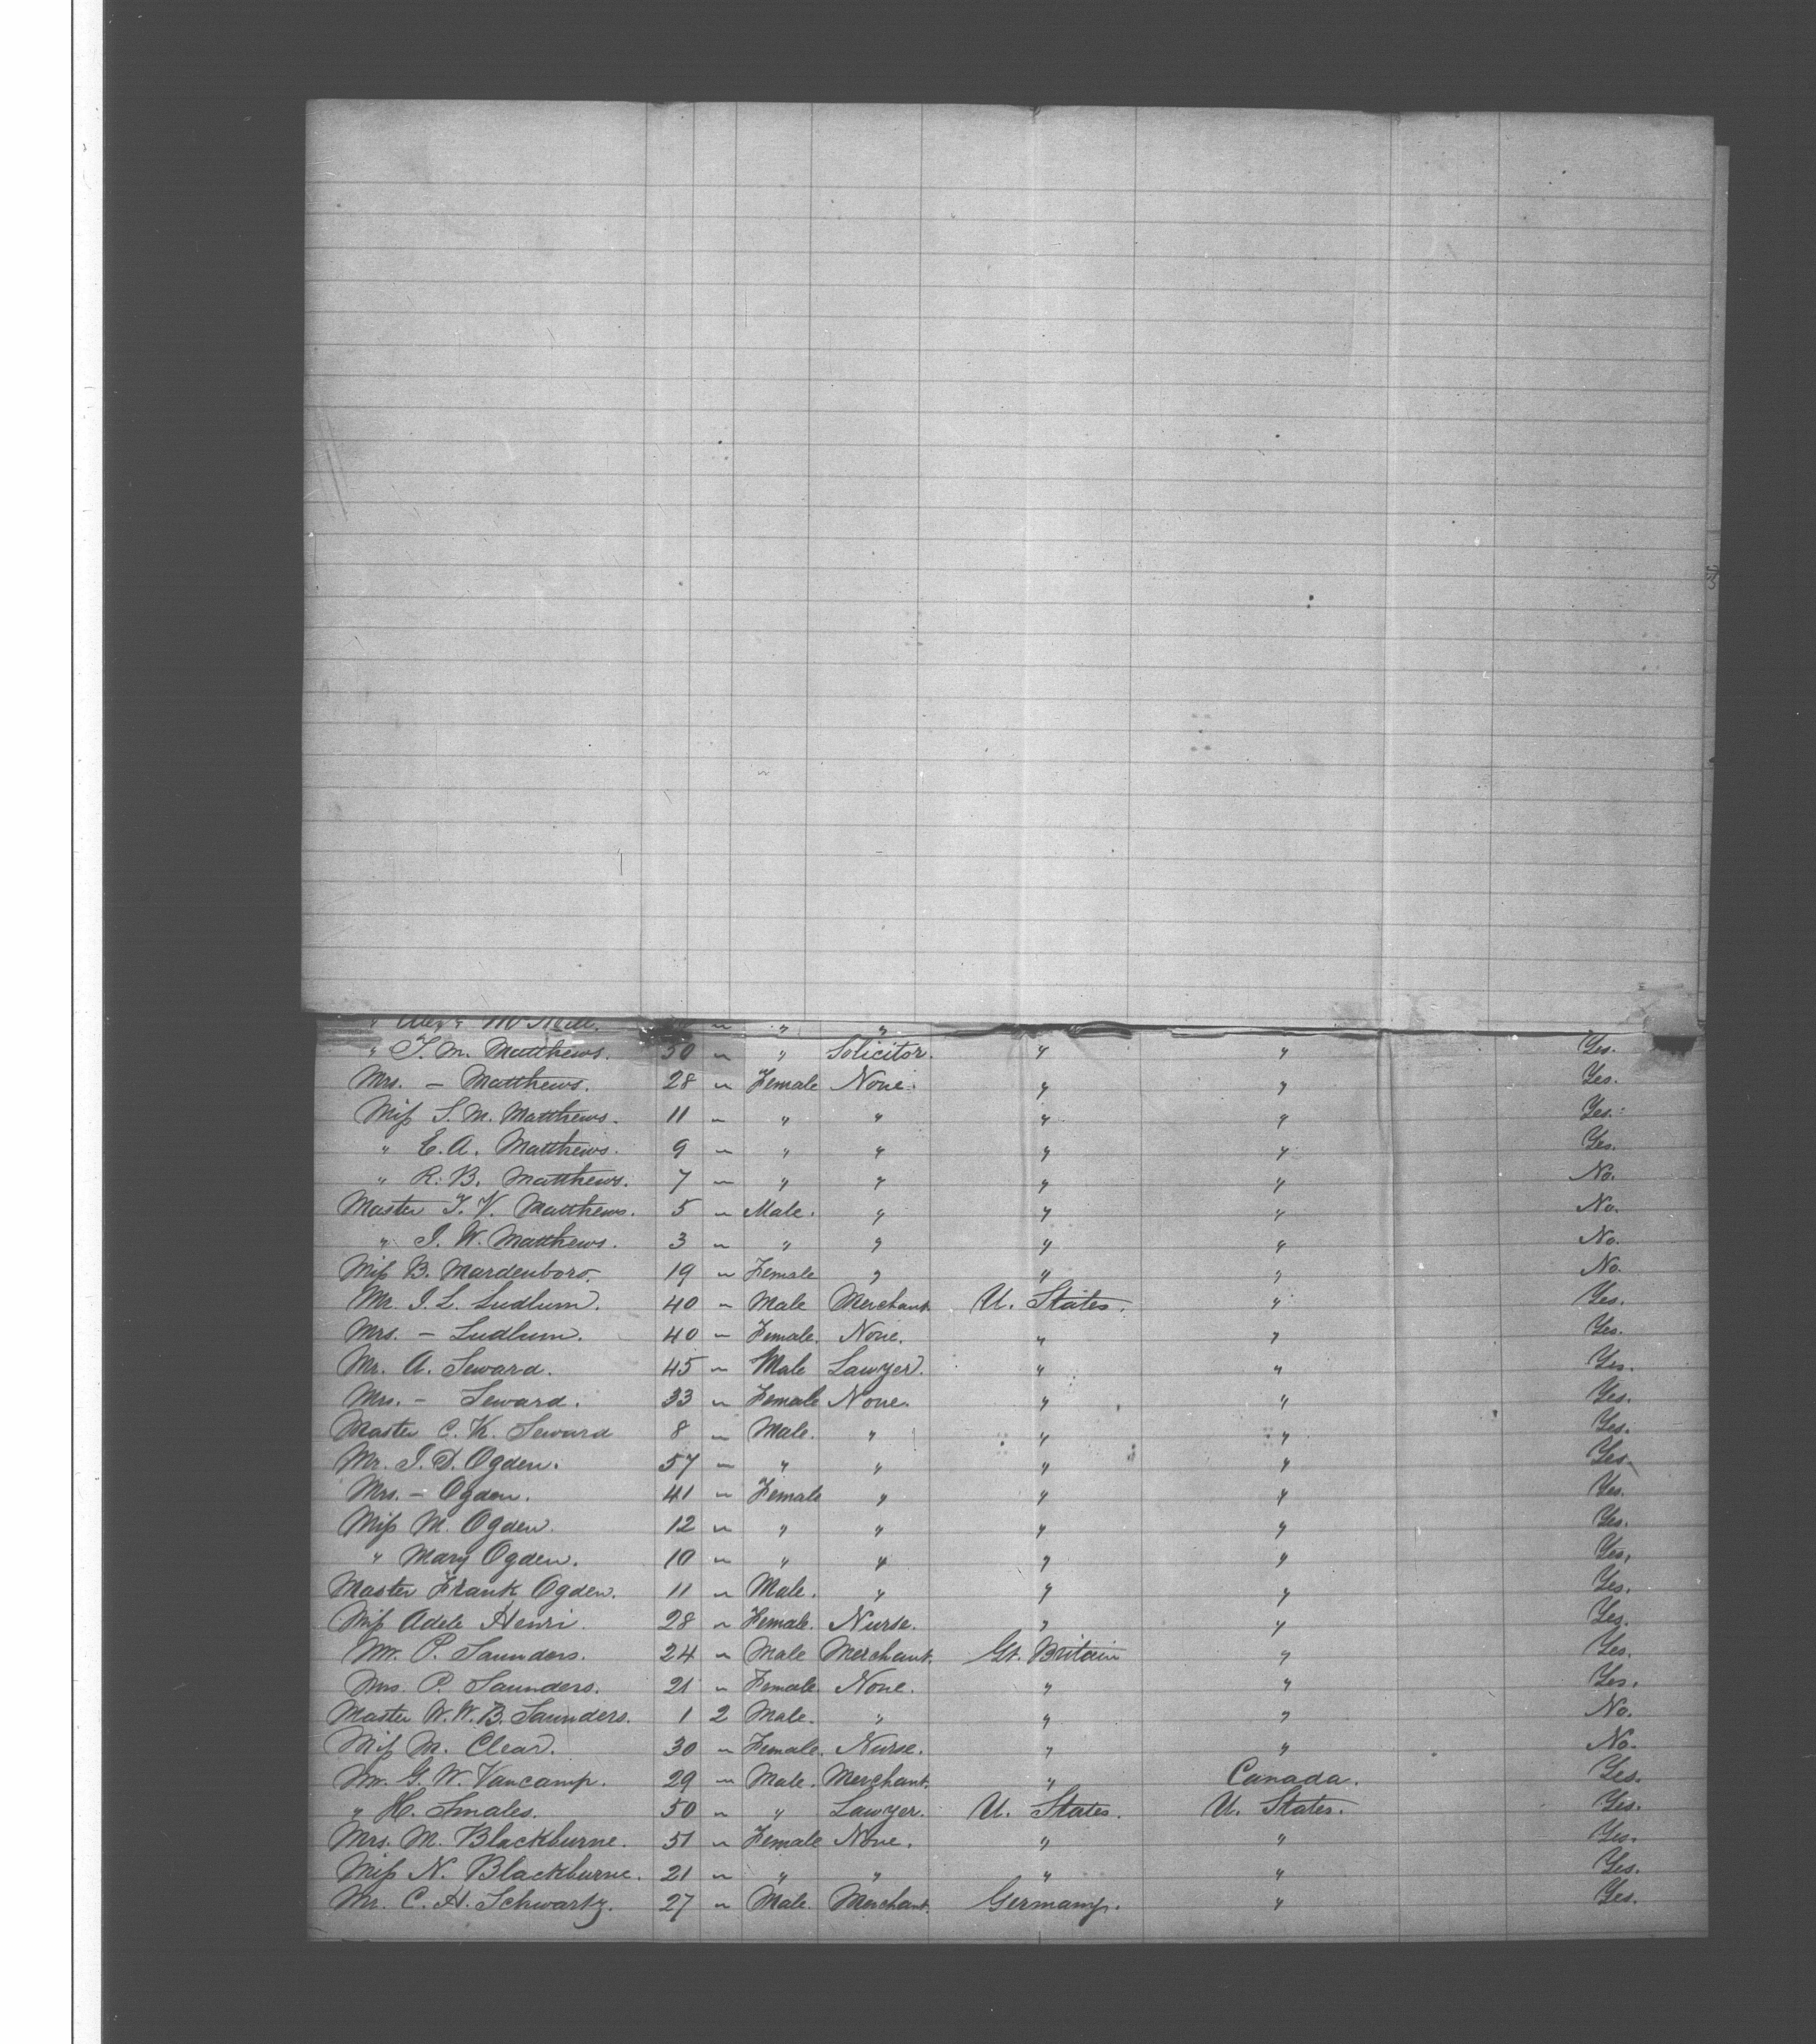 " Mc Neill. " "
" T. M. Matthews. 30 " " Solicitor. " " Yes.
Mrs. – Matthews. 28 " Female None. " " Yes.
Miss S. M. Matthews. 11 " " " " " Yes.
" E. A. Matthews. 9 " " " " " Yes.
" R. B. Matthews. 7 " " " " " No.
Master T. V. Matthews. 5 " Male. " " " No.
" J. W. Matthews. 3 " " " " " No.
Miss B. Mardenboro. 19 " Female " " " No.
Mr. J. L. Ludlum. 40 " Male Merchant. U. States. " Yes.
Mrs. – Ludlum. 40 " Female. None. " " Yes.
Mr. A. Seward. 45 " Male Lawyer. " " Yes.
Mrs. – Seward. 33 " Female None. " " Yes.
Master C. K. Seward 8 " Male. " " " Yes.
Mr. J. D. Ogden. 57 " " " " " Yes.
Mrs. – Ogden. 41 " Female " " " Yes.
Miss M. Ogden. 12 " " " " " Yes.
" Mary Ogden. 10 " " " " " Yes.
Master Frank Ogden. 11 " Male. " " " Yes.
Miss Adele Henri. 28 " Female. Nurse. " " Yes.
Mr. P. Saunders. 24 " Male Merchant. Gt. Britain " Yes.
Mrs P. Saunders. 21 " Female. None. " " Yes.
Master W. W. B. Saunders. 1 2 Male. " " " No.
Miss M. Clear. 30 " Female. Nurse. " " No.
Mr. G. W. Vancamp. 29 " Male. Merchant. " Canada. Yes.
" H. Smales. 50 " " Lawyer. U. States. U. States. Yes.
Mrs. M. Blackburne. 51 " Female None. " " Yes.
Miss N. Blackburne. 21 " " " " " Yes.
Mr. C. H. Schwartz. 27 " Male. Merchant. Germany. " Yes.